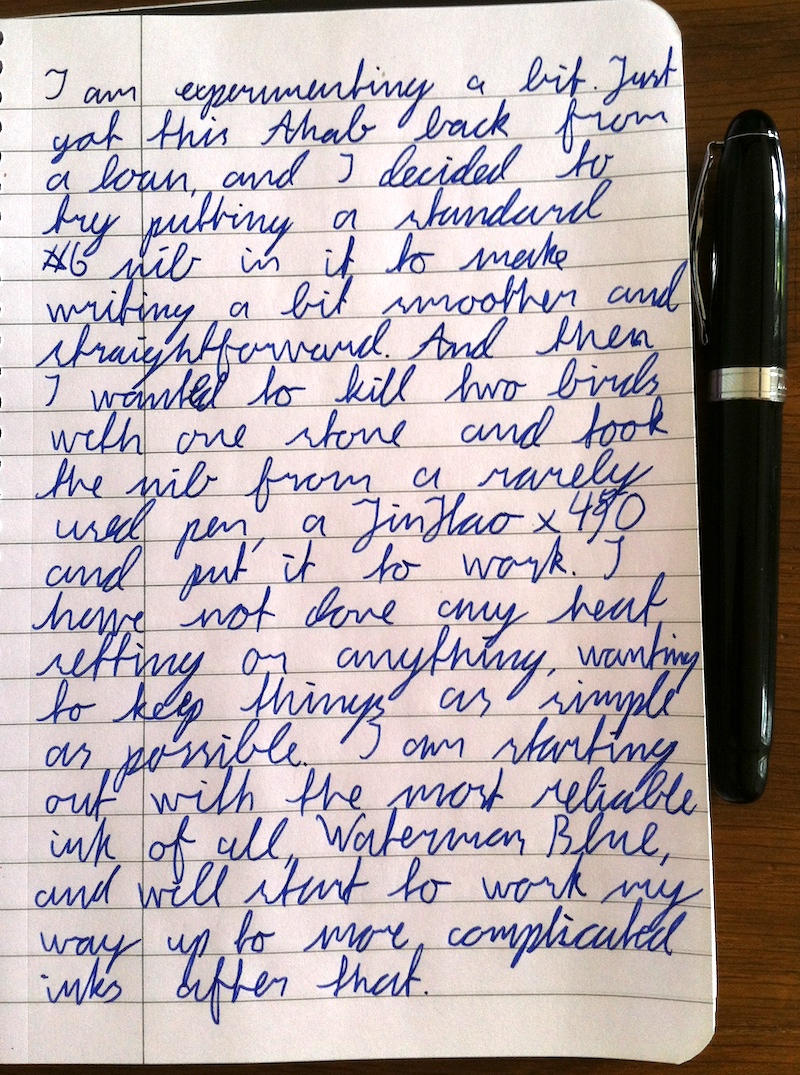 I am experimenting a bit. Just
got this Ahab back from
a loan, and I decided to
try putting a standard
#6 nib in it to make
writing a bit smoother and
straightforward. And then
I wanted to kill two birds
with one stone and took
the nib from a rarely
used pen, a JinHao x450
and put it to work. I
have not done any heat
setting or anything, wanting
to keep things as simple
as possible. I am starting
out with the most reliable
ink of all, Waterman Blue,
and will start to work my
way up to more complicated
inks after that.